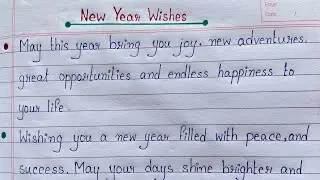 Page:
Date: /
New Year Wishes
May this year bring you joy, new adventures,
great opportunities and endless happiness to
your life.
Wishing you a new year filled with peace, and
success. May your days shine brighter and